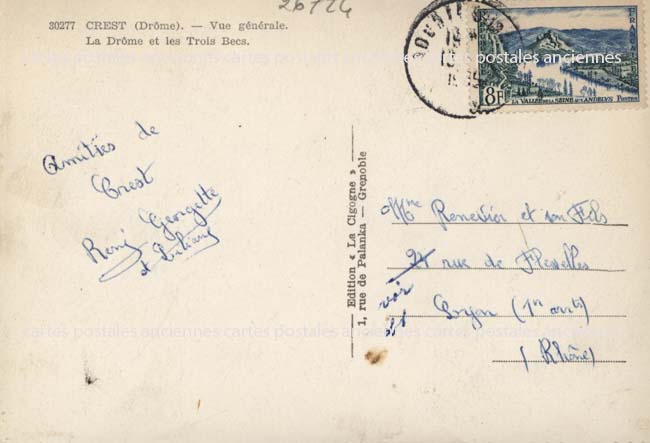 26724
30277 CREST (Drôme). — Vue générale.
La Drôme et les Trois Becs.
cartes postales anciennes cartes postales anciennes cartes postales anciennes
8F
LA VALLÉE DE LA SEINE AUX ANDELYS POSTES
FRANÇAISE
Amitiés de
Crest
René Georgette
et Liliane
Edition « La Cigogne »
1, rue de Palanka — Grenoble
Mme Renevier et son Fils
21 rue de Flesselles
voir
Lyon (1er arrt)
(Rhône)
cartes postales anciennes cartes postales anciennes cartes postales anciennes